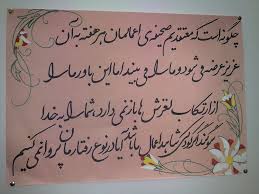 چگونه است که معتقدیم صحیفه‌ی اعمالمان هر هفته به آن
عزیز عرضه می‌شود و ما را می‌بیند اما این باور ما را
از ارتکاب لغزش‌ها باز نمی‌دارد، شما را به خدا
سوگند اگر کودکی شاهد اعمال ما باشد آیا در نوع رفتارمان پروا نمی‌کنیم